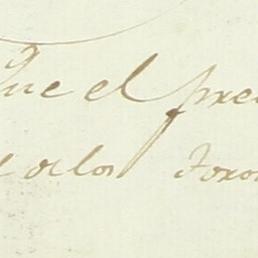 que el pre
de los Toro